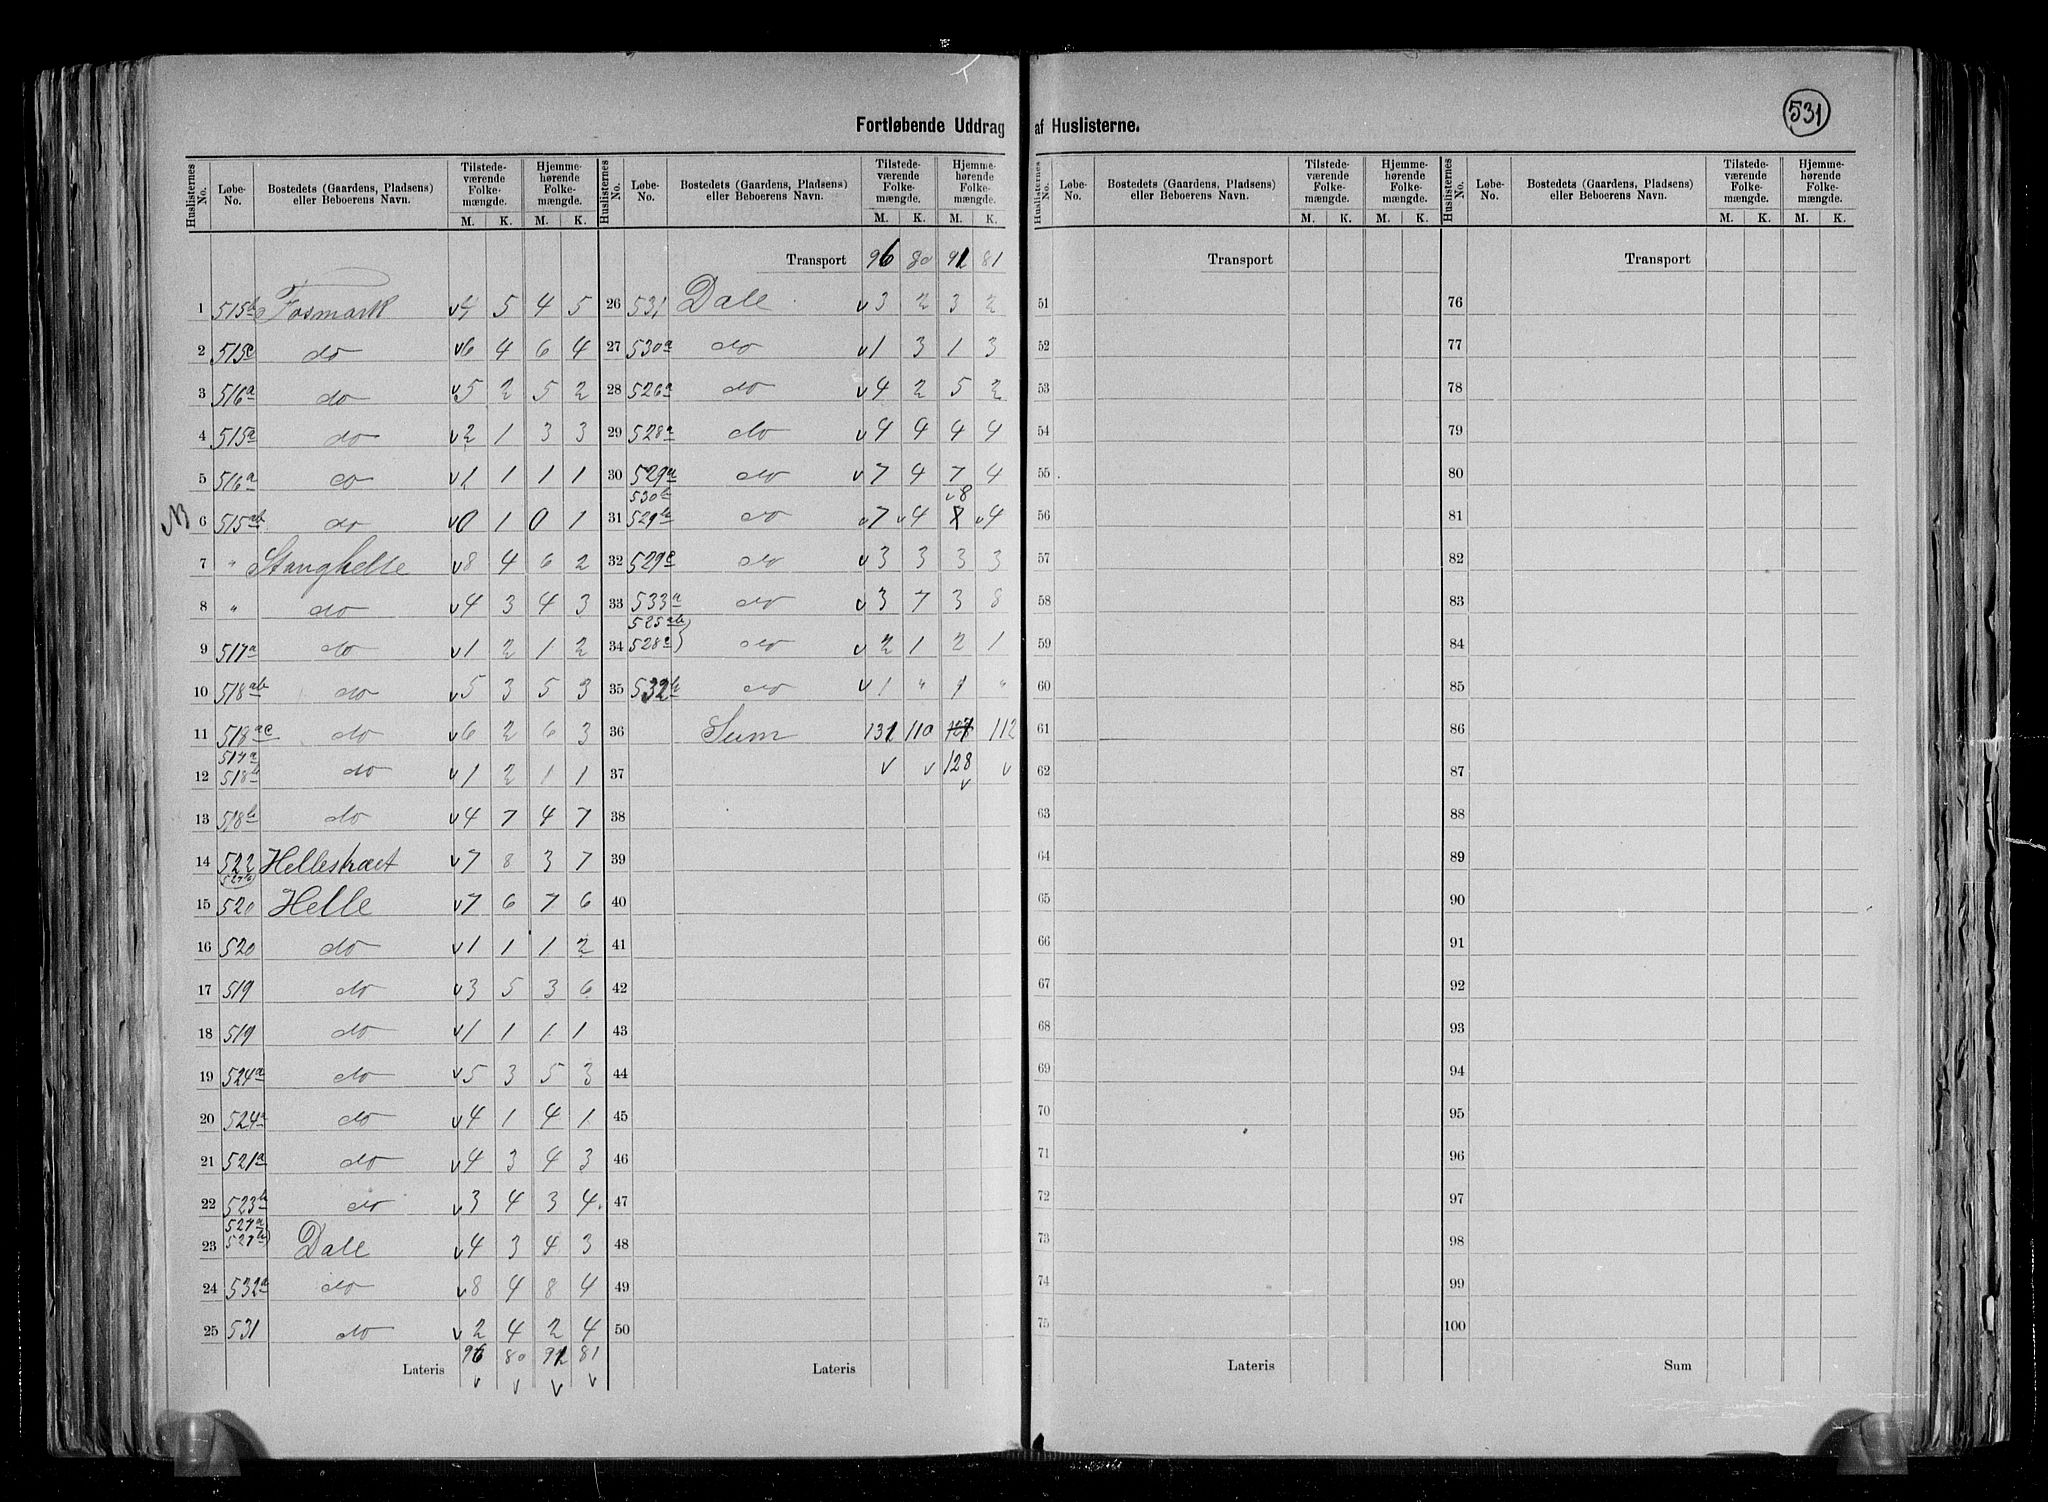 531
Fortløbende Uddrag af Huslisterne.
Huslisternes No. Løbe-No. Bostedets (Gaardens, Pladsens) eller Beboerens Navn. Tilstedeværende Folkemængde. M. K. Hjemmehørende Folkemængde. M. K.
1 515b Fosmark v4 5 4 5
2 515c do v6 4 6 4
3 516a do v5 2 5 2
4 515a do v2 1 3 3
5 516a do v1 1 1 1
NB 6 515ab do v0 1 0 1
7 " Stanghelle v8 4 6 2
8 " do v4 3 4 3
9 517a do v1 2 1 2
10 518ab do v5 3 5 3
11 518ac do v6 2 6 3
517a
12 518b do v1 2 1 1
13 518b do v4 7 4 7
14 522 Hellestræet v7 8 3 7
15 520 Helle v7 6 7 6
16 520 do v1 1 1 2
17 519 do v3 5 3 6
18 519 do v1 1 1 1
19 524a do v5 3 5 3
20 524a do v4 1 4 1
21 521a do v4 3 4 3
22 523b do v3 4 3 4
527a
23 527b Dale v4 3 4 3
24 532a do v8 4 8 4
25 531 do v2 4 2 4
Lateris 96 80 91 81
v v v v
Huslisternes No. Løbe-No. Bostedets (Gaardens, Pladsens) eller Beboerens Navn. Tilstedeværende Folkemængde. M. K. Hjemmehørende Folkemængde. M. K.
Transport 96 80 91 81
26 531 Dale v3 2 3 2
27 530a do v1 3 1 3
28 526a do v4 2 5 2
29 528a do v4 4 4 4
30 529a do v7 4 7 4
530b v8
31 529b do v7 v4 7 v4
32 529c do v3 3 3 3
33 533a do v3 7 3 8
525ab
34 528a } do v2 1 2 1
35 532b do v1 " 1 "
36 Sum 131 110 127 112
37 v v 128 v
v
38
39
40
41
42
43
44
45
46
47
48
49
50
Lateris
Huslisternes No. Løbe-No. Bostedets (Gaardens, Pladsens) eller Beboerens Navn. Tilstedeværende Folkemængde. M. K. Hjemmehørende Folkemængde. M. K.
Transport
51
52
53
54
55
56
57
58
59
60
61
62
63
64
65
66
67
68
69
70
71
72
73
74
75
Lateris
Huslisternes No. Løbe-No. Bostedets (Gaardens, Pladsens) eller Beboerens Navn. Tilstedeværende Folkemængde. M. K. Hjemmehørende Folkemængde. M. K.
Transport
76
77
78
79
80
81
82
83
84
85
86
87
88
89
90
91
92
93
94
95
96
97
98
99
100
Sum